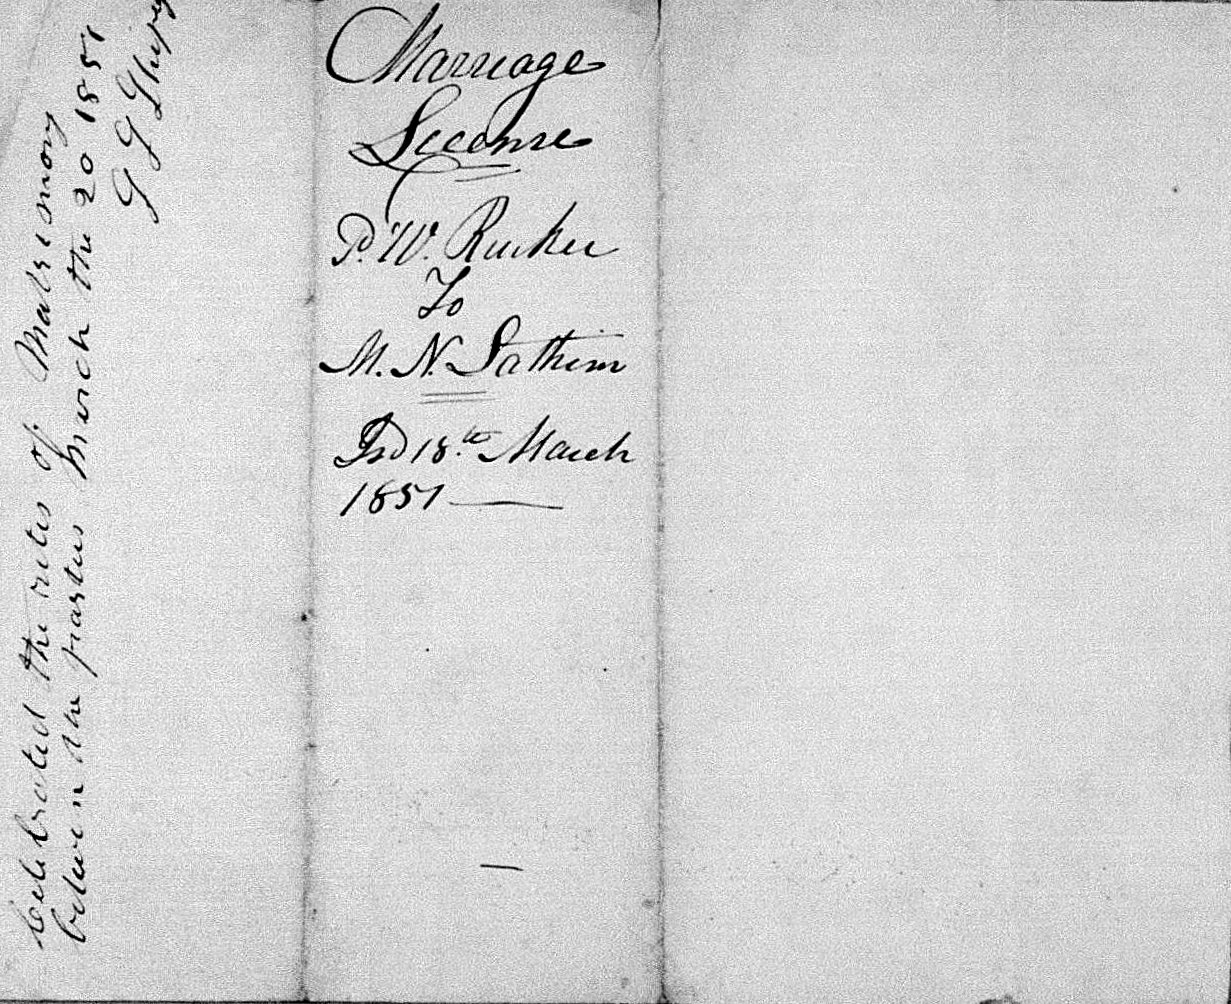 Celebrated the rites of Matrimony
between the parties March the 20 1851
G G
Marriage
License
P. W. Rucker
To
M. N. Lathim
Isd 18th March
1851